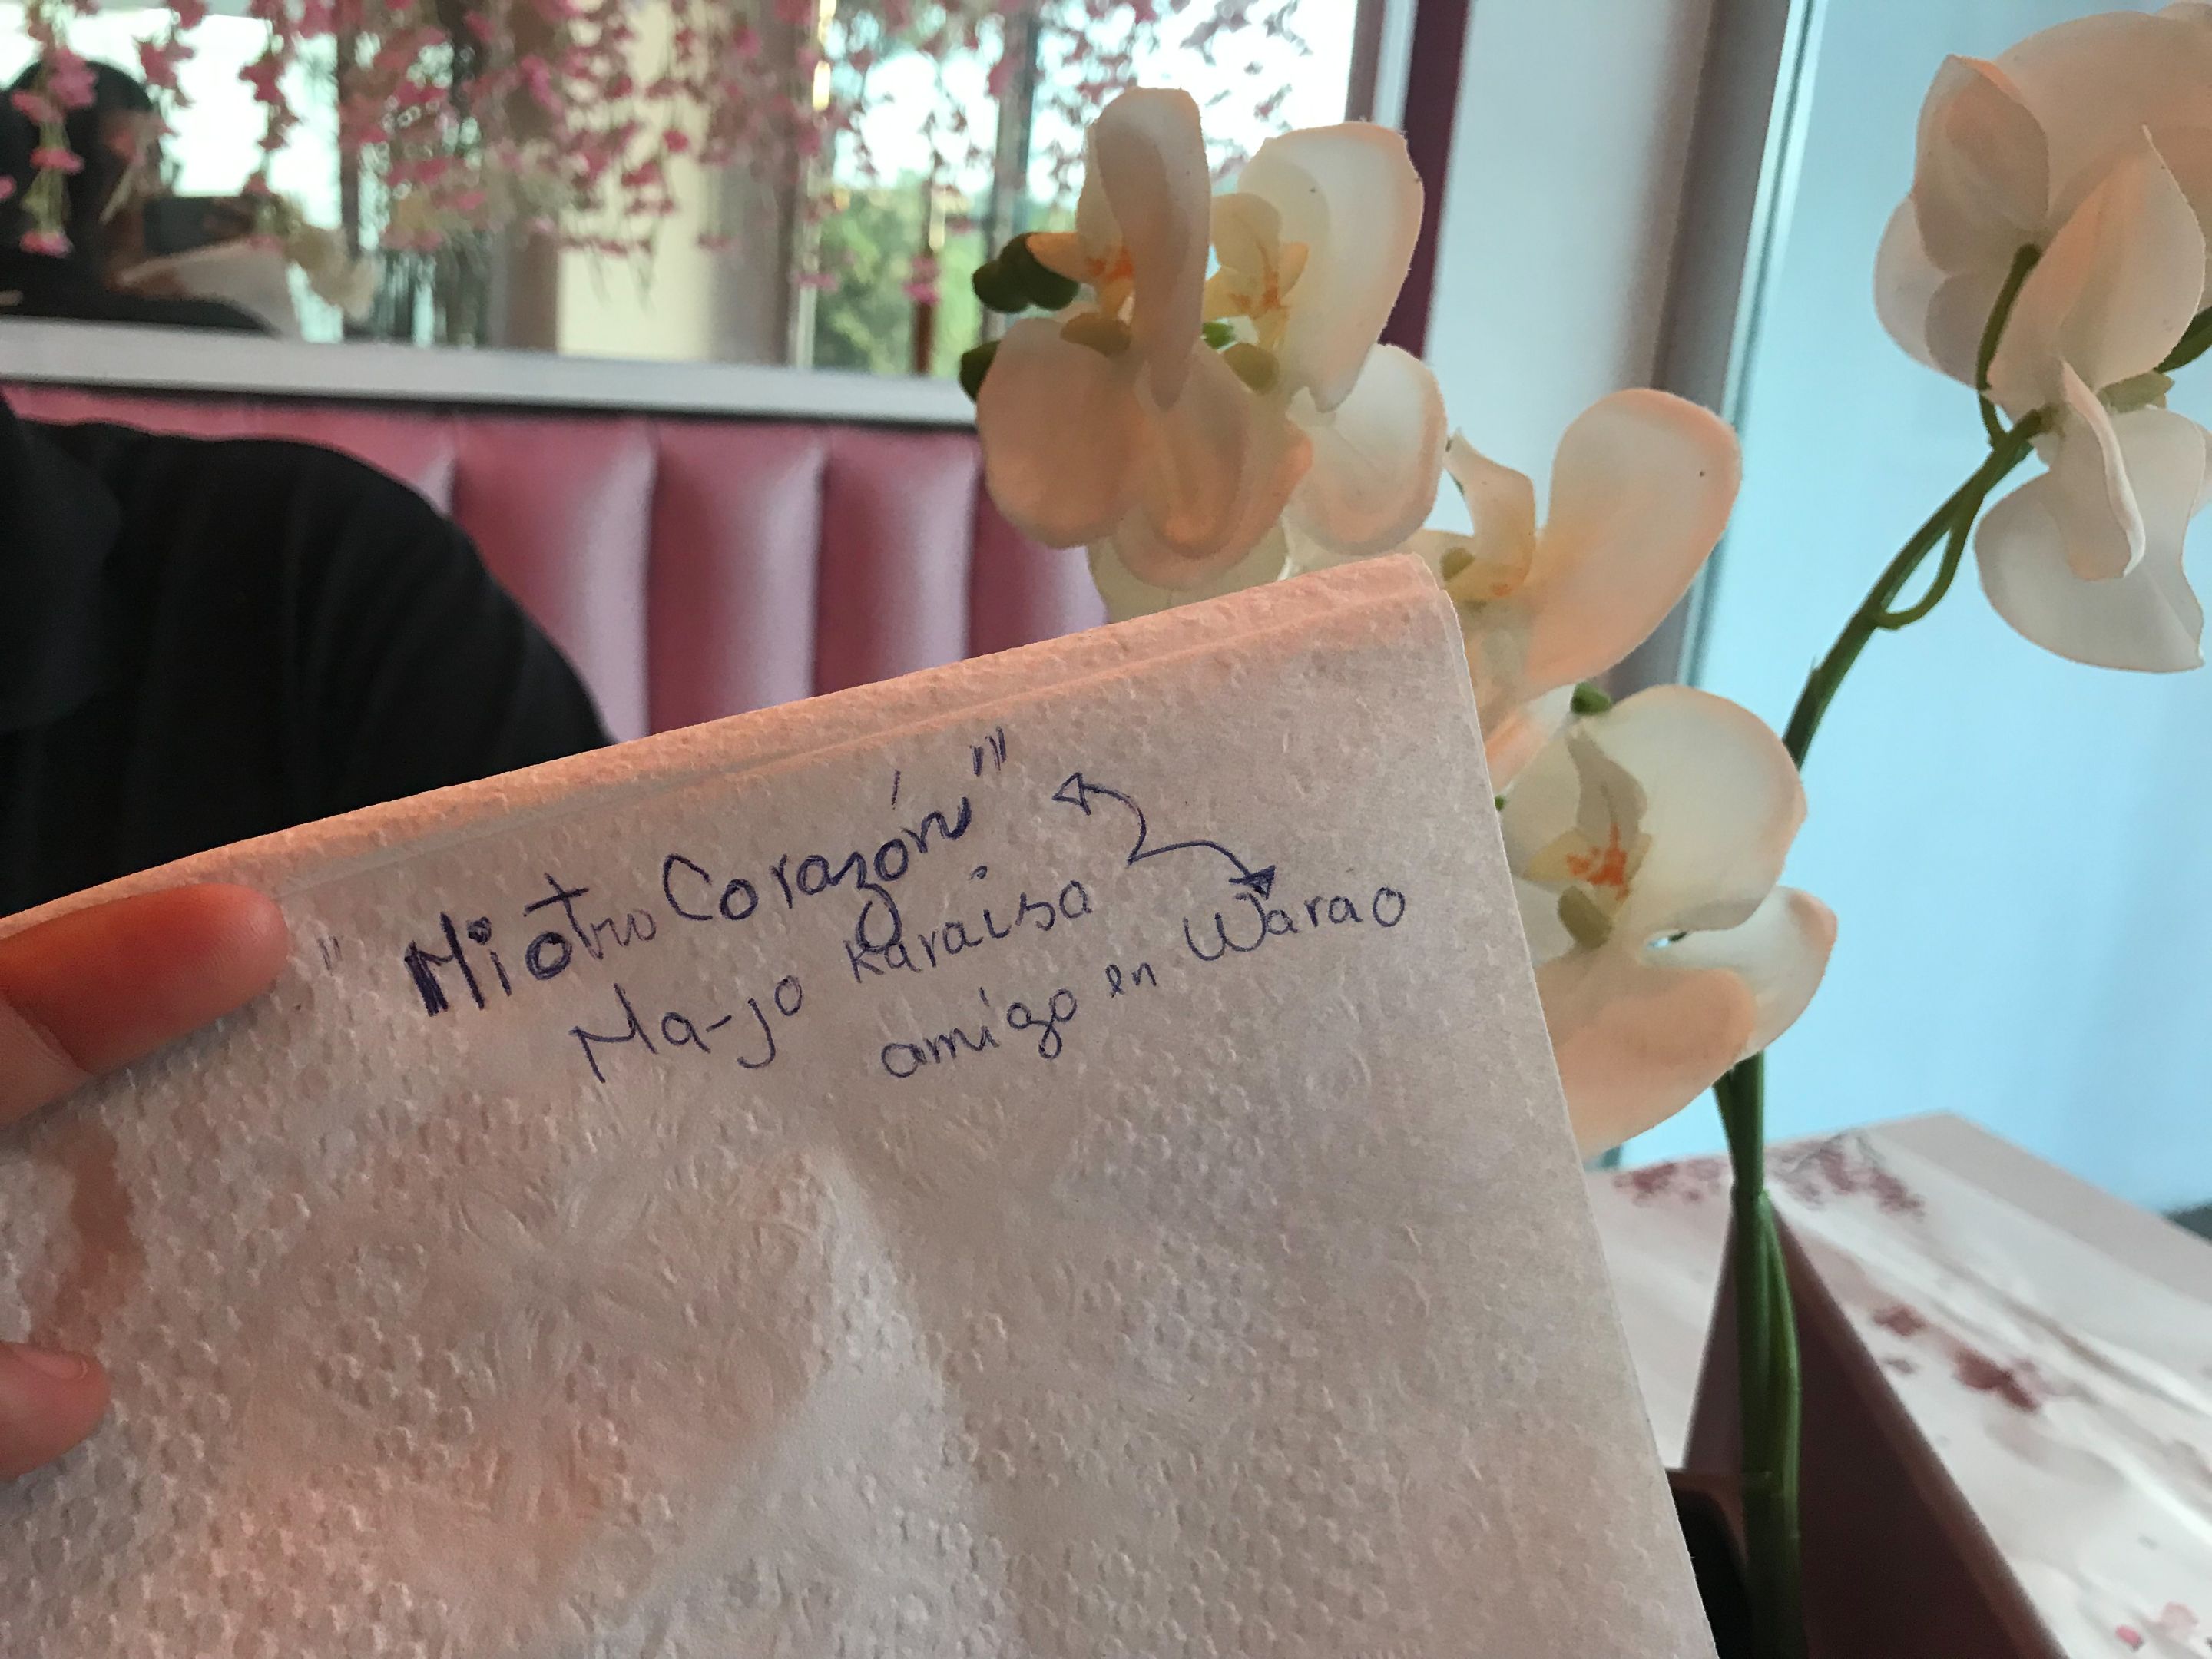 "Mi otro Corazón"
Ma-jo Karaisa
amigo en Warao